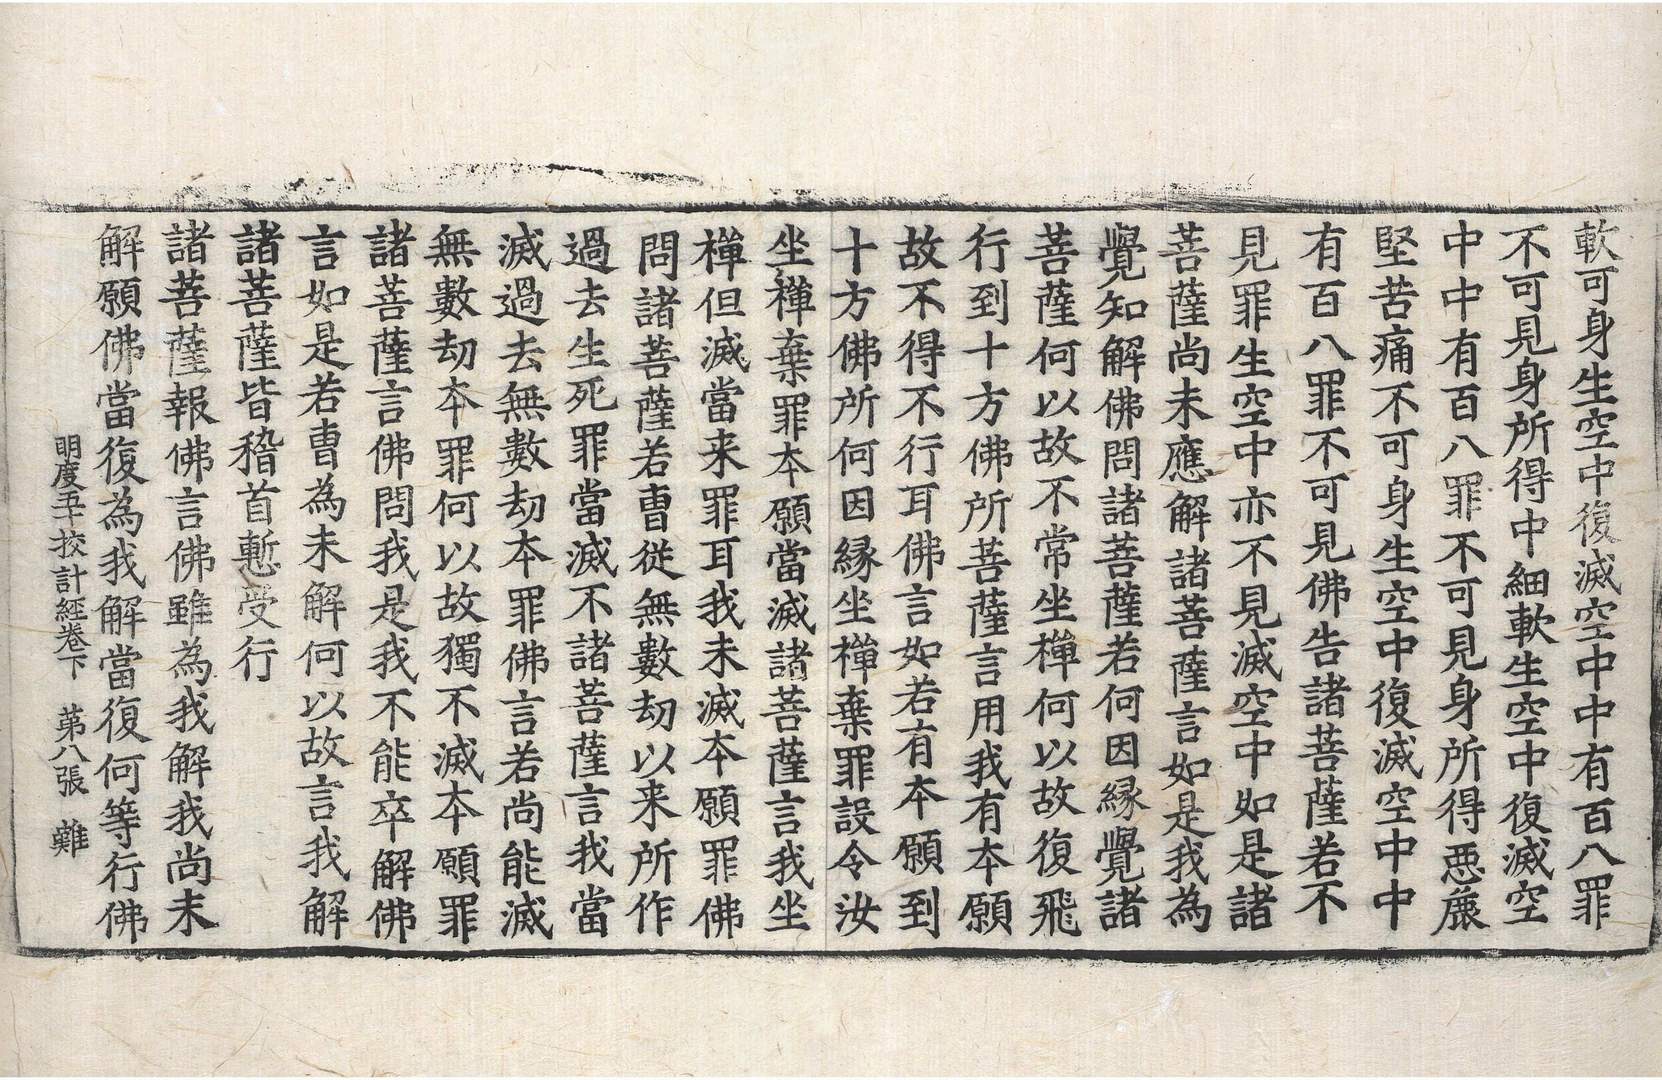 軟可身生空中復滅空中中有百八罪
不可見身所得中細軟生空中復滅空
中中有百八罪不可見身所得惡麁
堅苦痛不可身生空中復滅空中中
有百八罪不可見佛告諸菩薩若不
見罪生空中亦不見滅空中如是諸
菩薩尚未應解諸菩薩言如是我為
覺知解佛問諸菩薩若何因緣覺諸
菩薩何以故不常坐禪何以故復飛
行到十方佛所菩薩言用我有本願
故不得不行耳佛言如若有本願到
十方佛所何因緣坐禪棄罪設令汝
坐禪棄罪本願當滅諸菩薩言我坐
禪但滅當来罪耳我未滅本願罪佛
問諸菩薩若曹從無數劫以来所作
過去生死罪當滅不諸菩薩言我當
滅過去無數劫本罪佛言若尚能滅
無數劫本罪何以故獨不滅本願罪
諸菩薩言佛問我是我不能卒解佛
言如是若曹為未解何以故言我解
諸菩薩皆稽首慙受行
諸菩薩報佛言佛雖為我解我尚未
解願佛當復為我解當復何等行佛
明度五十挍計經卷下　第八張　難